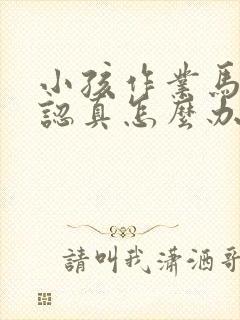 小孩作業馬
認真怎麼办
請叫我瀟洒哥